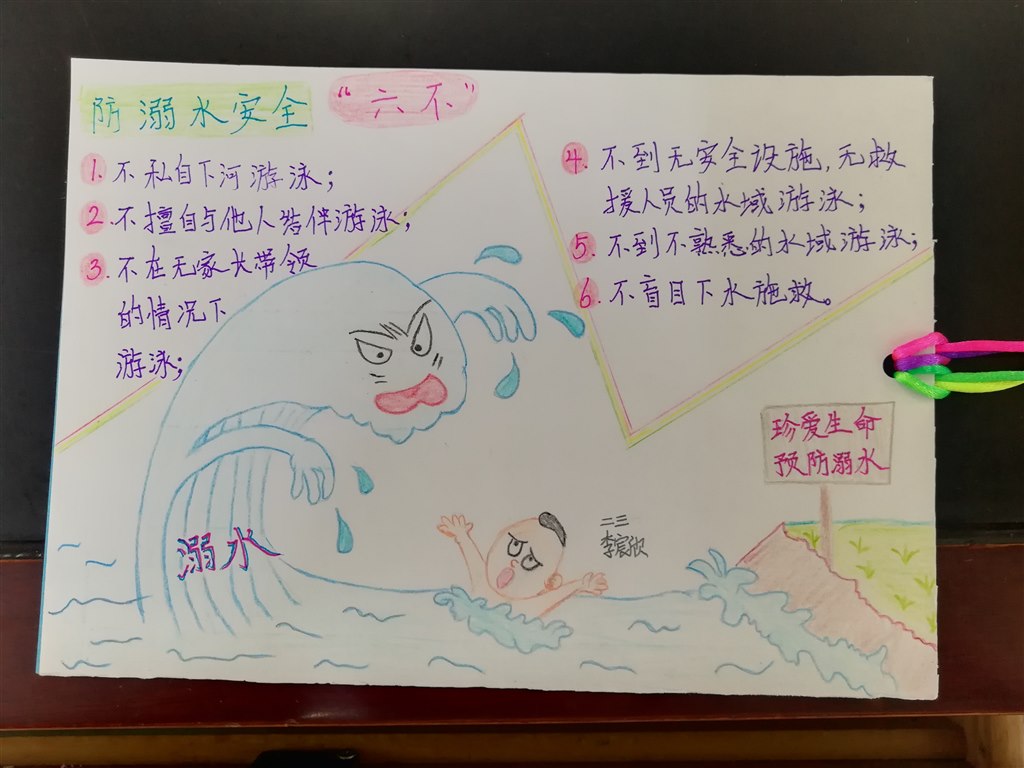 防溺水安全“六不”
1. 不私自下河游泳；
2. 不擅自与他人结伴游泳；
3. 不在无家长带领
的情况下
游泳；
4. 不到无安全设施，无救
援人员的水域游泳；
5. 不到不熟悉的水域游泳；
6. 不盲目下水施救。
珍爱生命
预防溺水
溺水
二三
李宸欣